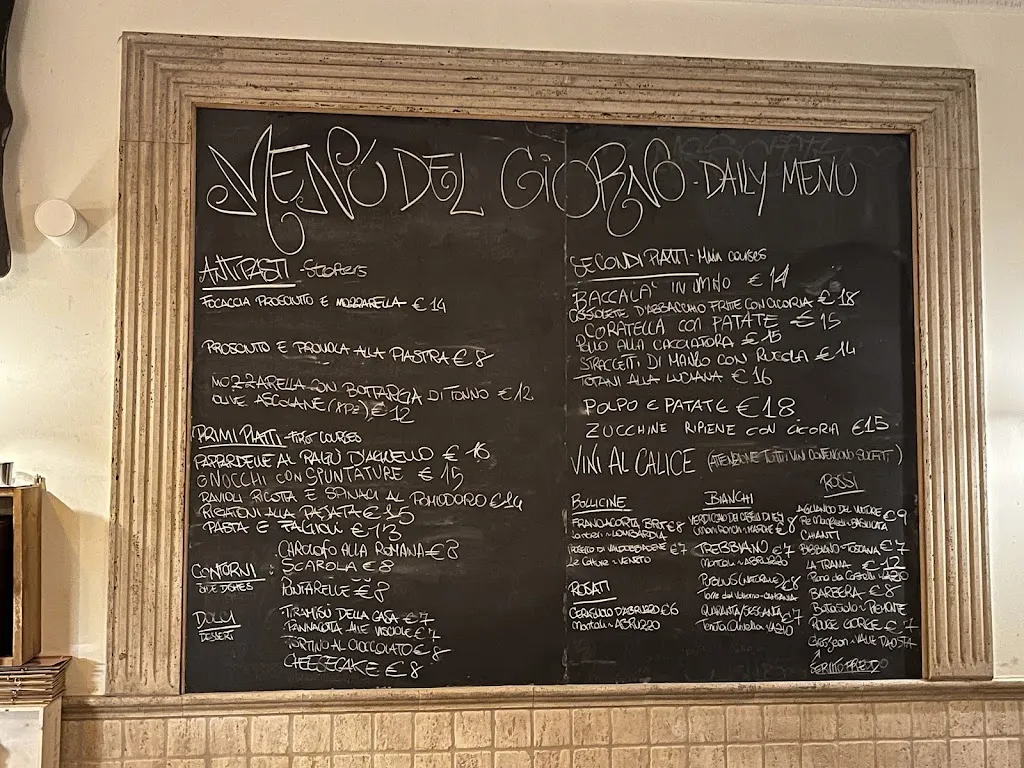 MENÚ DEL GIORNO - DAILY MENU
ANTIPASTI - Starters
FOCACCIA PROSCIUTTO E MOZZARELLA € 14
PROSCIUTTO E PROVOLA ALLA PIASTRA € 8
MOZZARELLA CON BOTTARGA DI TONNO € 12
OLIVE ASCOLANE (8PZ) € 12
PRIMI PIATTI - First courses
PAPPARDELLE AL RAGÙ D'AGNELLO € 16
GNOCCHI CON SPUNTATURE € 15
RAVIOLI RICOTTA E SPINACI AL POMODORO € 14
RIGATONI ALLA PAJATA € 15
PASTA E FAGIOLI € 13
CONTORNI
SIDE DISHES
CARCIOFO ALLA ROMANA € 8
SCAROLA € 8
PUNTARELLE € 8
DOLCI
DESSERT
TIRAMISÙ DELLA CASA € 7
PANNACOTTA ALLE VISCIOLE € 7
TORTINO AL CIOCCOLATO € 8
CHEESECAKE € 8
SECONDI PIATTI - Main courses
BACCALA' IN UMIDO € 14
COSTOLETTE D'ABBACCHIO FRITTE CON CICORIA € 18
CORATELLA CON PATATE € 15
POLLO ALLA CACCIATORA € 15
STRACCETTI DI MANZO CON RUCOLA € 14
TOTANI ALLA LUCIANA € 16
POLPO E PATATE € 18
ZUCCHINE RIPIENE CON CICORIA € 15
VINI AL CALICE (ATTENZIONE TUTTI I VINI CONTENGONO SOLFITI)
BOLLICINE
FRANCIACORTA BRUT € 8
LOMBARDIA
DI VALDOBBIADENE € 7
Le Colture - VENETO
ROSATI
CERASUOLO D'ABRUZZO € 6
Marfoli - ABRUZZO
BIANCHI
VERDICCHIO DEI CASTELLI DI JESI € 8
MARCHE
TREBBIANO € 7
Marfoli - ABRUZZO
€ 8
Torre del Volturno - CAMPANIA
QUARANTA/SESSANTA € 7
LAZIO
ROSSI
AGLIANICO DEL VULTURE € 9
Re Manfredi - BASILICATA
CHIANTI
BIBBIANO - TOSCANA € 7
LA TRAMA € 12
LAZIO
BARBERA € 8
PIEMONTE
ROUGE GORGE € 7
Grosjean - VALLE D'AOSTA